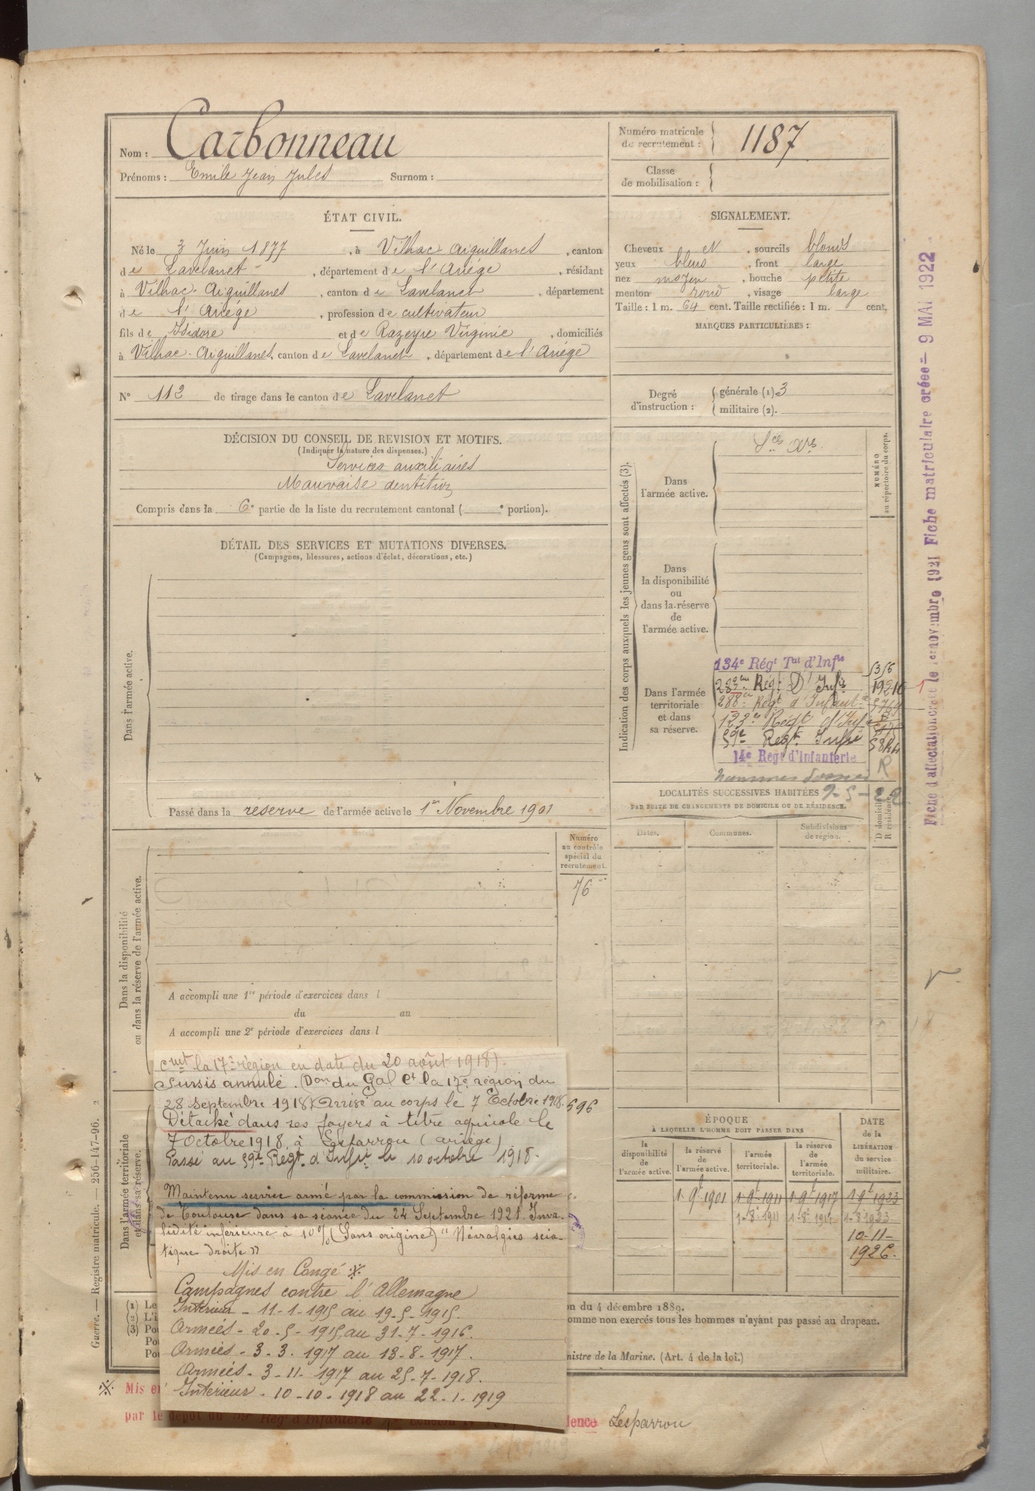 Nom : Carbonneau
Prénoms : Emile Jean Jules Surnom :
Numéro matricule de recrutement : 1187
Classe de mobilisation :
ÉTAT CIVIL.
Né le 3 Juin 1877, à Vilhac Aiguillanes, canton
de Lavelanet, département de l'Ariège, résidant
à Vilhac Aiguillanes, canton de Lavelanet, département
de l'Ariège, profession de cultivateur
fils de Isidore et de Razeyre Virginie, domiciliés
à Vilhac Aiguillanes, canton de Lavelanet, département de l'Ariège
N° 112 de tirage dans le canton de Lavelanet
SIGNALEMENT.
Cheveux et, sourcils blonds
yeux bleus, front large
nez moyen, bouche petite
menton rond, visage large
Taille : 1 m. 64 cent. Taille rectifiée : 1 m. cent.
MARQUES PARTICULIÈRES :
Degré d'instruction : générale (1) 3
militaire (2).
DÉCISION DU CONSEIL DE REVISION ET MOTIFS.
(Indiquer la nature des dispenses.)
Services auxiliaires
Mauvaise dentition
Compris dans la 6e partie de la liste du recrutement cantonal ( e portion).
DÉTAIL DES SERVICES ET MUTATIONS DIVERSES.
(Campagnes, blessures, actions d'éclat, décorations, etc.)
Dans l'armée active.
Passé dans la réserve de l'armée active le 1er Novembre 1901
Indication des corps auxquels les jeunes gens sont affectés (3).
NUMÉRO au répertoire du corps.
Dans l'armée active.
Dans la disponibilité ou dans la réserve de l'armée active.
Dans l'armée territoriale et dans sa réserve.
134e Régt Tal d'Infie
Régt d'Infie
288e Régt d'Infant.
123e Régt d'Inf
59e Regt Infie
14e Regt d'infanterie
R
LOCALITÉS SUCCESSIVES HABITÉES
PAR SUITE DE CHANGEMENTS DE DOMICILE OU DE RÉSIDENCE.
Dates. Communes. Subdivisions de région. D domicile R résidence
Fiche matriculaire créée - 9 MAI 1922
Numéro au contrôle spécial du recrutement.
76
Dans la disponibilité ou dans la réserve de l'armée active.
A accompli une 1re période d'exercices dans l
du au
A accompli une 2e période d'exercices dans l
Dans l'armée territoriale et dans sa réserve.
cmt la 17e région en date du 20 août 1918).
Sursis annulé. (Don du Gal Ct la 17e région du
28 Septembre 1918) Arrivé au corps le 7 Octobre 1918.
Détaché dans ses foyers à titre agricole le
7 Octobre 1918, à Lesparrou (Ariège)
Passé au 59e Régt d'Infie le 10 octobre 1918.
596
Maintenu service armé par la commission de réforme
de Toulouse dans sa séance du 24 Septembre 1921. Inva-
lidité inférieure à 10% (Sans origine) "Névralgies scia-
tique droite"
Mis en Congé ※
Campagnes contre l'Allemagne
Intérieur - 11-1-1915 au 19-5-1915.
Armées - 20-5-1915 au 31-7-1916.
Armées - 3-3-1917 au 18-8-1917.
Armées - 3-11-1917 au 25-7-1918.
Intérieur - 10-10-1918 au 22-1-1919
ÉPOQUE
À LAQUELLE L'HOMME DOIT PASSER DANS
la disponibilité de l'armée active. la réserve de l'armée active. l'armée territoriale. la réserve de l'armée territoriale.
DATE de la LIBÉRATION du service militaire.
1-9bre 1901 1-9bre 1911 1-9bre 1917 1-9bre 1923
1-8bre 1911 1-8bre 1917 1-8bre 1923
10-11-
1926.
n du 4 décembre 1889.
omme non exercés tous les hommes n'ayant pas passé au drapeau.
nistre de la Marine. (Art. 4 de la loi.)
※ Mis e
par le dépôt du Rég d'Infanterie dence Lesparrou
Guerre. — Registre matricule. — 256-147-96.